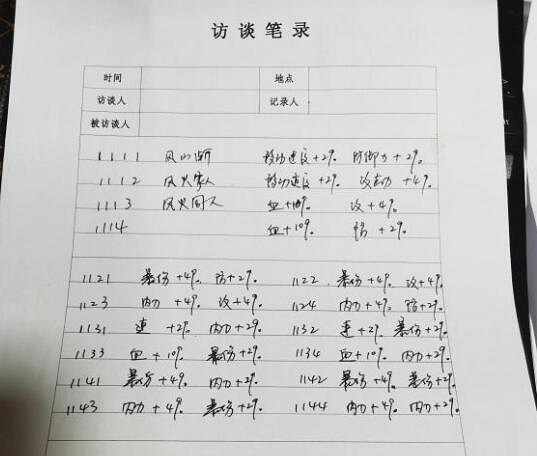 访谈笔录
时间 地点
访谈人 记录人
被访谈人
1111 风山渐 移动速度+2% 防御力+2%
1112 风火家人 移动速度+2% 攻击力+4%
1113 风火同人 血+10% 攻+4%
1114 血+10% 防+2%
1121 暴伤+4% 防+2% 1122 暴伤+4% 攻+4%
1123 内力+4% 攻+4% 1124 内力+4% 防+2%
1131 速+2% 内力+2% 1132 速+2% 暴伤+2%
1133 血+10% 暴伤+2% 1134 血+10% 内力+2%
1141 暴伤+4% 内力+2% 1142 暴伤+4% 暴伤+2%
1143 内力+4% 暴伤+2% 1144 内力+4% 内力+2%